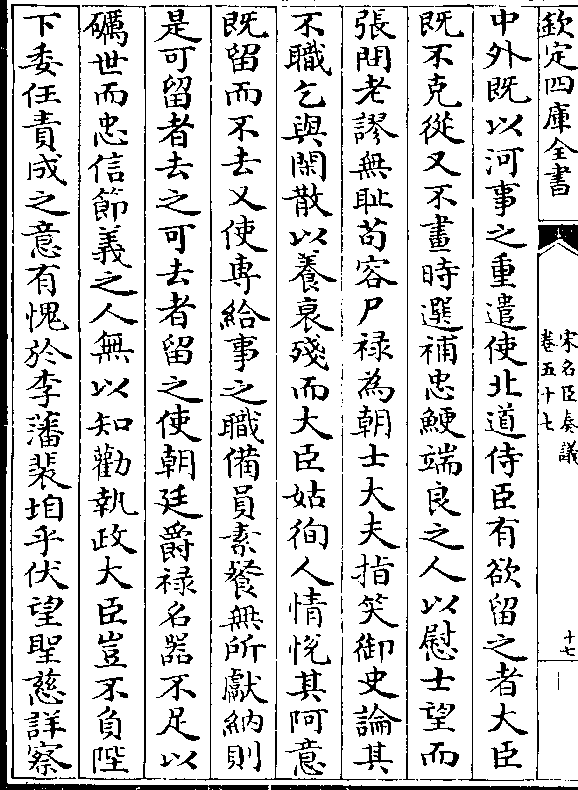 欽定四庫全書
宋名臣奏議
卷五十七
十七
中外既以河事之重遣使北道侍臣有欲留之者大臣
既不克從又不晝時選補忠鯁端良之人以慰士望而
張問老謬無耻苟容尸禄為朝士大夫指笑御史論其
不職乞與閑散以養衰殘而大臣姑徇人情悅其阿意
既留而不去又使専給事之職備員素餐無所獻納則
是可留者去之可去者留之使朝廷爵禄名器不足以
礪世而忠信節義之人無以知勸執政大臣豈不負陛
下委任責成之意有愧於李藩裴垍乎伏望聖慈詳察